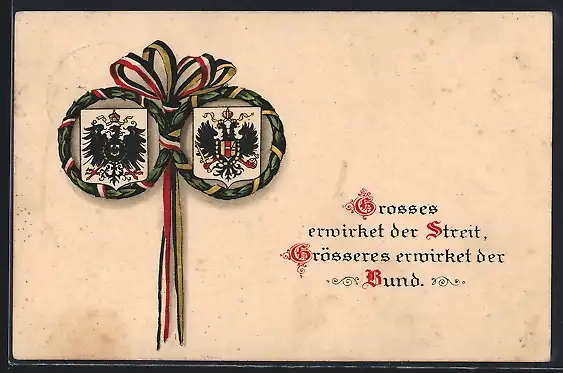 Grosses
erwirket der Streit,
Grösseres erwirket der
Bund.